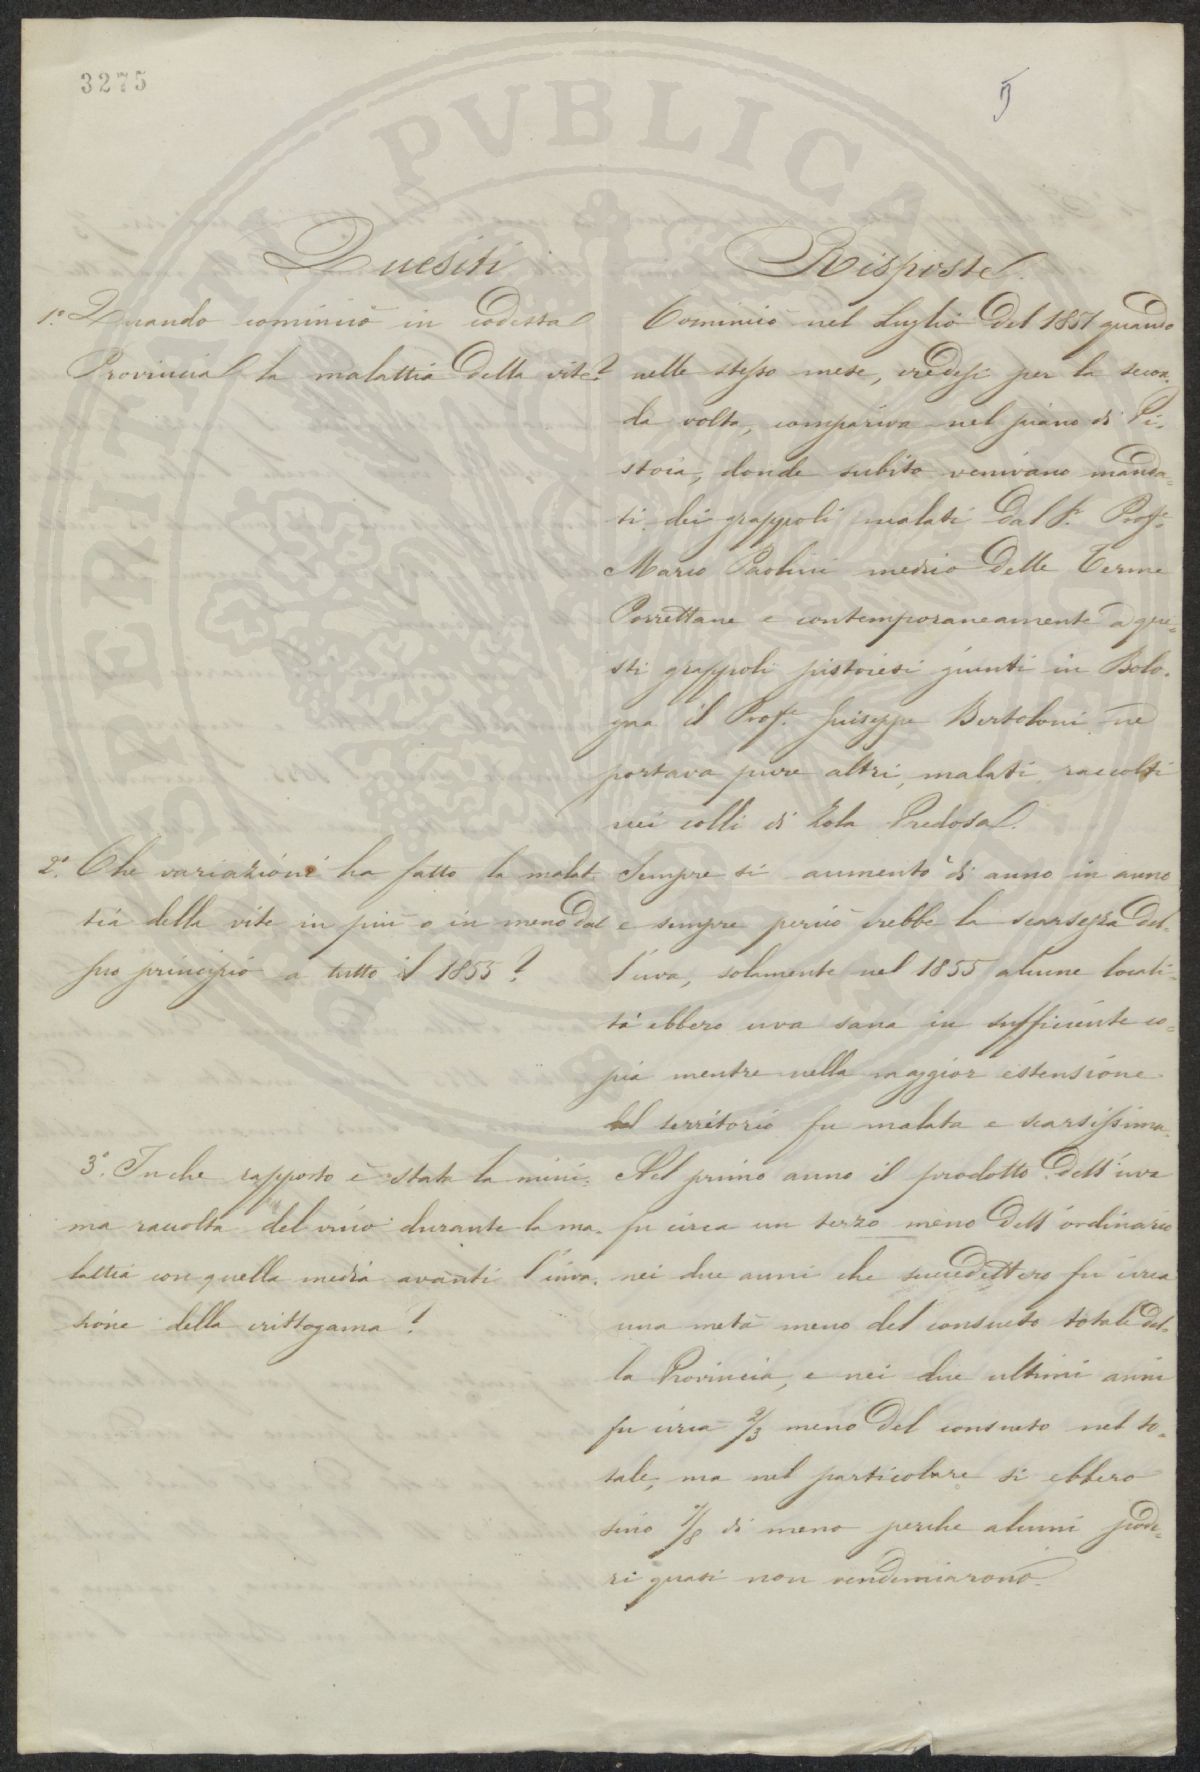 3275
5
Quesiti
1.° Quando cominciò in codesta
Provincia la malattia della vite?
2.° Che variazioni ha fatto la malat-
tia della vite in più o in meno dal
suo principio a tutto il 1855?
3.° In che rapporto è stata la mini-
ma raccolta del vino durante la ma-
lattia con quella media avanti l'inva-
sione della crittogama?
Risposte
Cominciò nel Luglio del 1851 quando
nello stesso mese, credesi per la secon-
da volta, compariva nel piano di Pi-
stoia, donde subito venivano manda-
ti dei grappoli malati dal S.r Prof.e
Marco Paolini medico delle Terme
Porrettane e contemporaneamente a que-
sti grappoli pistoiesi giunti in Bolo-
gna il Prof.e Giuseppe Bertoloni ne
portava pure altri malati raccolti
nei colli di Zola Predosa.
Sempre si aumentò di anno in anno
e sempre perciò crebbe la scarsezza del-
l'uva, solamente nel 1855 alcune locali-
tà ebbero uva sana in sufficiente co-
pia mentre nella maggior estensione
del territorio fu malata e scarsissima.
Nel primo anno il prodotto dell'uva
fu circa un terzo meno dell'ordinario
nei due anni che succedettero fu circa
una metà meno del consueto totale del-
la Provincia, e nei due ultimi anni
fu circa 2/3 meno del consueto nel to-
tale, ma nel particolare si ebbero
sino 7/8 di meno perche alcuni pode-
ri quasi non vendemiarono.
PVBLICA